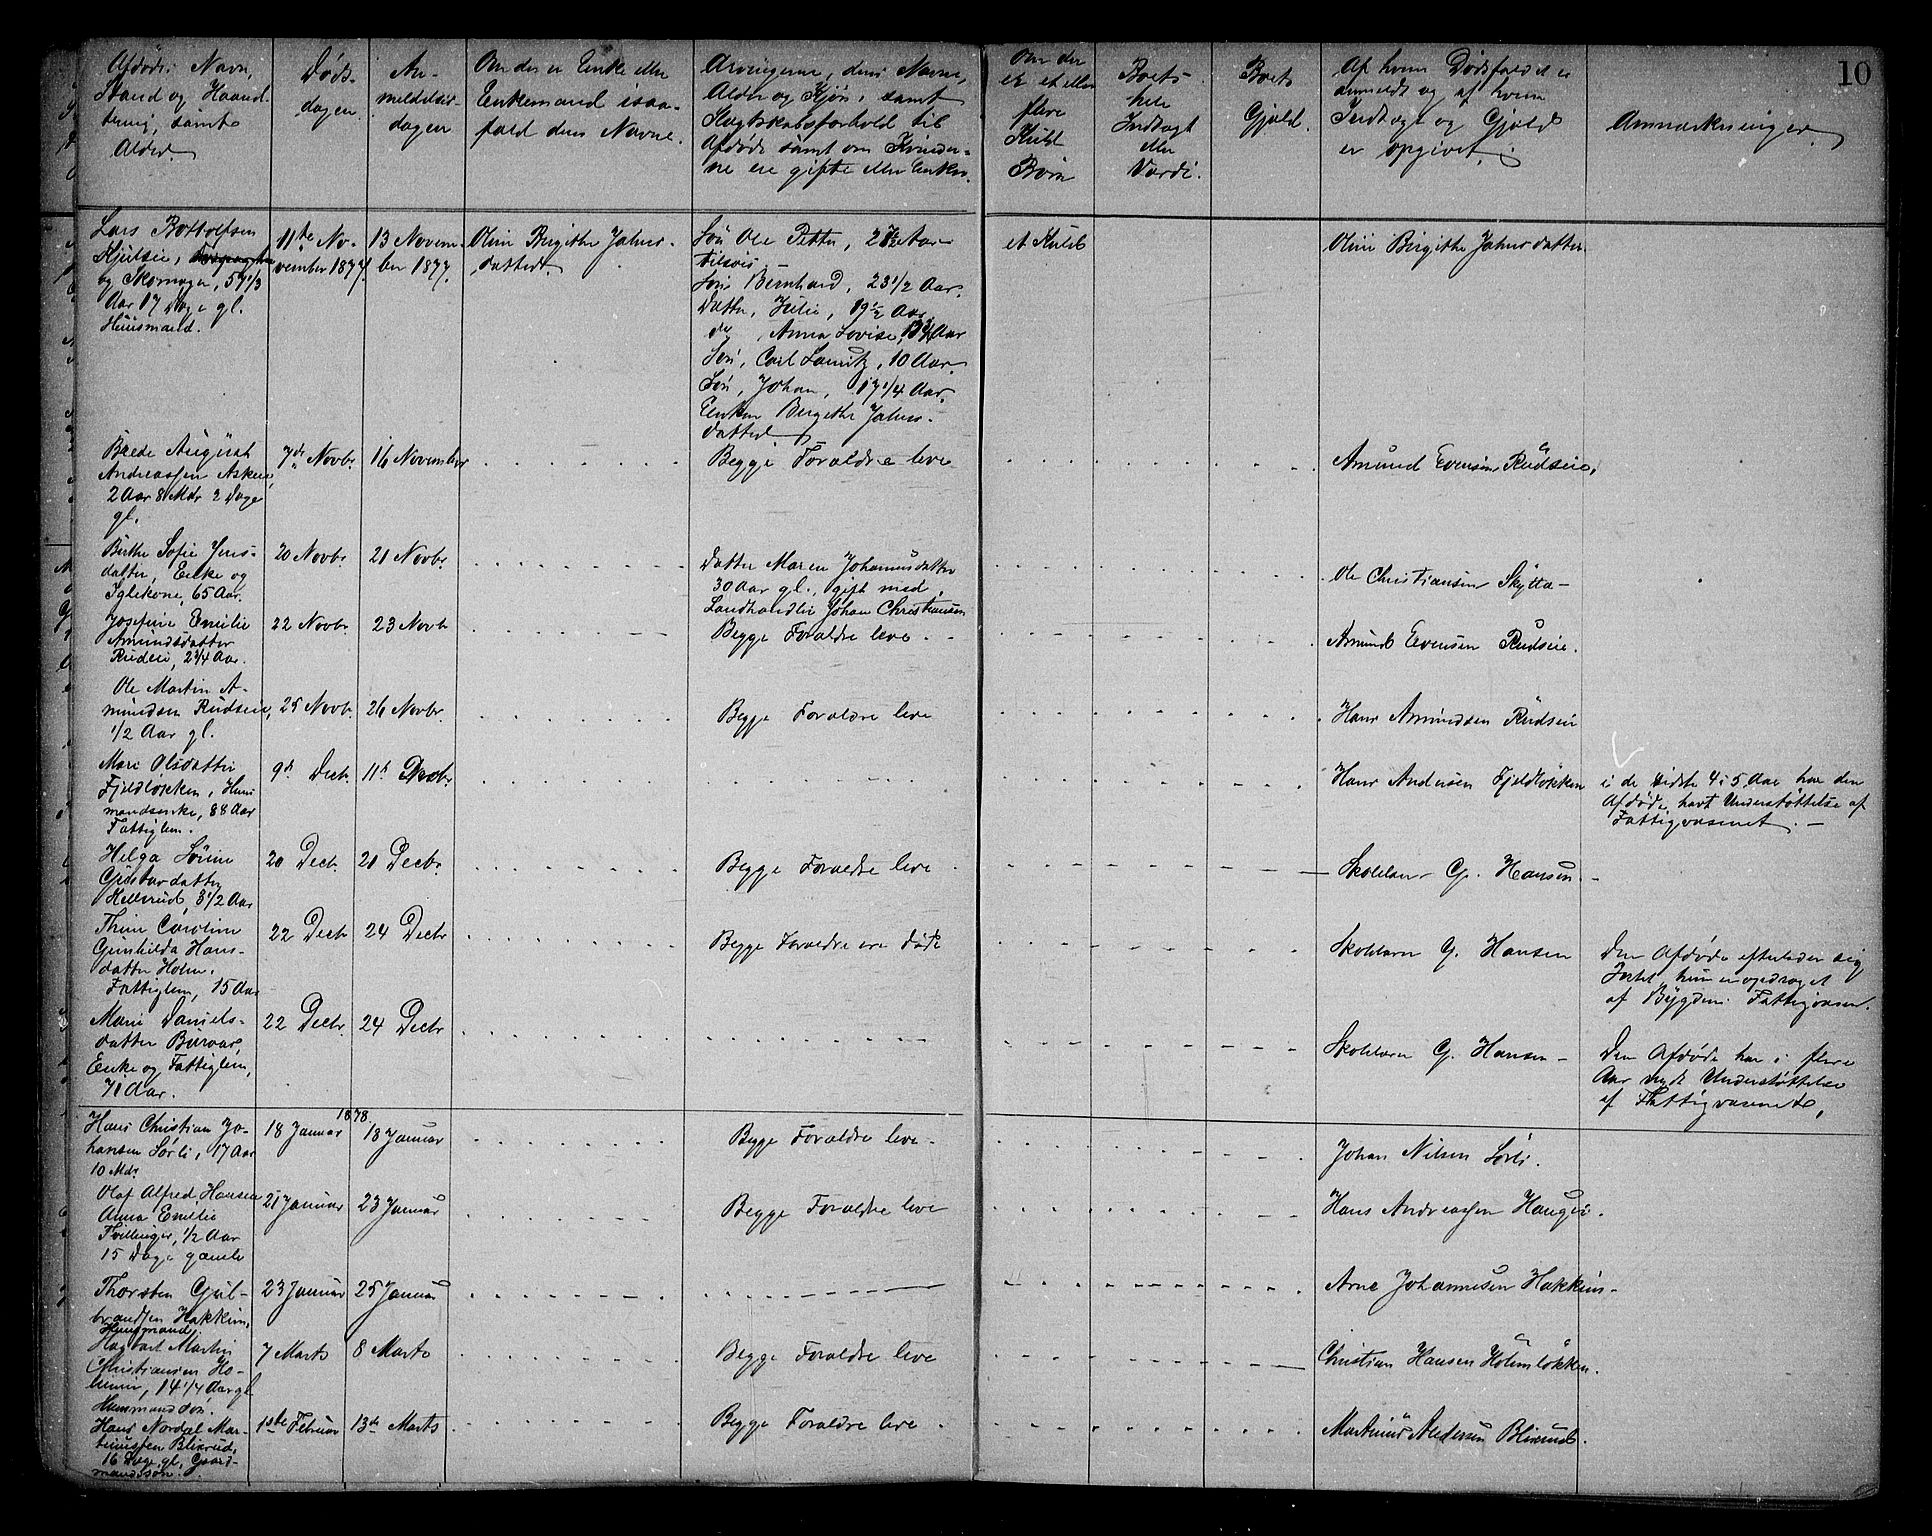 10
Afdødes Navn,
Stand og Haand-
tering, samt
Alder.
Døds-
dagen.
An-
meldelses-
dagen
Om der er Enke eller
Enkemand isaa-
fald dens Navne.
Arvingerne, deres Navne,
Alder og Kjøn, samt
Slagtskabsforhold til
Afdøde samt om Kvinder-
ne ere gifte eller Enker.
Om der
er et eller
flere
Kuld
Børn
Boets
hele
Indtægt
eller
Værdi.
Boets
Gjæld.
Af hvem Dødsfaldet er
anmeldt og af hvem
Indtægt og Gjæld
er opgivet.
Anmærkninger.
Lars Rottolfsen
Kjulseie,
og Skomager, 57 1/3
Aar 17 Dage gl.
Huusmand.
11te No-
vember 1877.
13 Novem-
ber 1877.
Oline Birgithe Johns-
datter.
Søn Ole Petter,
Søn Bernhard, 23 1/2 Aar.
Datter, Julie, 19 1/2 Aar
do, Anna Lovise, Aar
Søn, Carl Lauritz, 10 Aar.
Søn, Johan, 17 1/4 Aar.
Enken Birgithe Johns-
datter
et Kuld
Oline Birgithe Johnsdatter
Brede August
Andreassen Askeie,
2 Aar 8 Mdr 2 Dage
gl.
7de Novbr.
16 November
Begge Forældre leve
Amund Evensen Rudseie.
Birthe Sofie Jens-
datter, Enke og
Iglekone, 65 Aar.
20 Novbr.
21 Novbr.
Datter Maren Johannesdatter
30 Aar gl., gift med
Landhandler Johan Christiansen
Ole Christiansen Skytta-
Josefine Emilie
Amundsdatter
Rudeie, 2 3/4 Aar.
22 Novbr.
23 Novb
Begge Forældre leve.
Amund Evensen Rudseie.
Ole Martin A-
mundsen Rudseie,
1/2 Aar gl.
25 Novb.
26 Novbr.
Begge Forældre leve
Hans Amundsen Rudseie
Mari Olsdatter
Fjeldløkken, Huus
mandsenke, 88 Aar
Fattiglem.
9de Decb.
11te Decbr.
Hans Andersen Fjeldløkken
i de sidste 4 i 5 Aar har den
Afdøde havt Understøttelse af
Fattigvæsenet. -
Helga Sørine
Gustavdatter
Hellerud, 3 1/2 Aar
20 Decb.
21 Decbr.
Begge Forældre leve.
Skolelærer G. Hansen. -
Thine Caroline
Gunhilda Hans-
datter Holm.
Fattiglem, 15 Aar
22 Decb
24 Decbr
Begge Forældre ere døde
Skolelærer G. Hansen
Den Afdøde efterlader sig
Intet, hun er opdraget
af Bygdens Fattigvæsen.
Marie Daniels-
datter
Enke og Fattiglem,
71 Aar.
22 Decbr.
24 Decbr
Skolelærer G. Hansen -
Den Afdøde har i flere
Aar nydt Understøttelse
af Fattigvæsenet,
1878
Hans Christian Jo-
hansen Sørli, 17 Aar
10 Mdr.
18 Januar
18 Januar
Begge Forældre leve.
Johan Nilsen Sørli.
Olaf Alfred Hansen
Anna Emilie
Tvillinger, 1/2 Aar
15 Dage gamle
21 Januar
23 Januar
Begge Forældre leve
Hans Andreassen Haugeie.
Thorsten Gul-
brandsen Hakkim,
Huusmand.
23 Januar
25 Januar
Arne Johannesen Hakkim-
Hagbart Martin
Christiansen Ho-
14 1/4 Aar gl
Huusmandssøn.
7 Marts
8 Marts
Begge Forældre leve
Christian Hansen Holmløkken.
Hans Nordal Mar-
tinussen Blixrud,
16 Dage gl, Gaard-
mandssøn.
1ste Februar
13de Marts
Begge Forældre leve.
Martinus Andersen Blixrud.